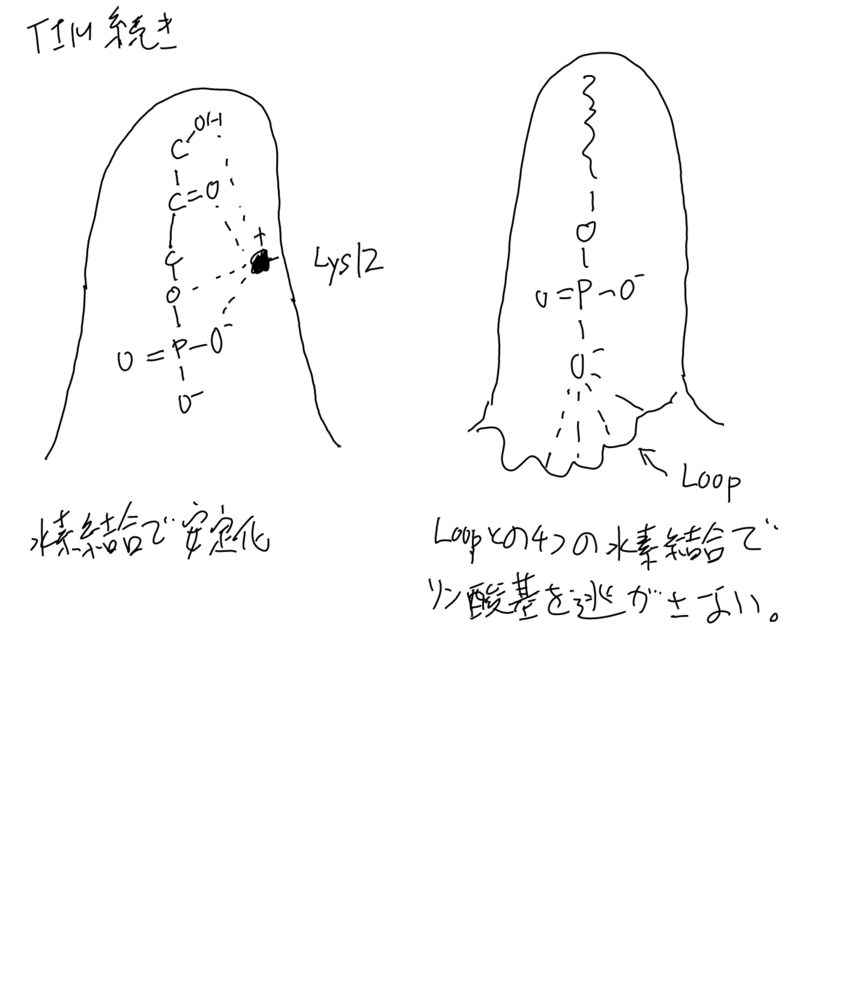 TIM 続き
OH
C
C=O
C
O
O=P-O⁻
O⁻
+
Lys12
水素結合で安定化
O
O=P-O⁻
O⁻
Loop
Loopとの4つの水素結合で
リン酸基を逃がさない。